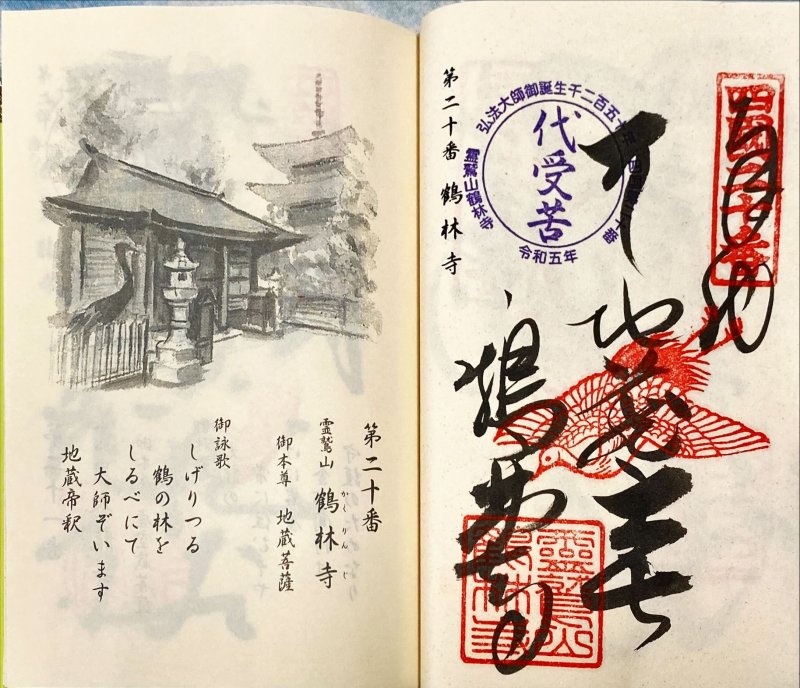 奉納
鶴林寺
弘法大師御誕生千二百五十年
代受苦
霊鷲山鶴林寺
令和五年
第二十番 鶴林寺
第二十番
霊鷲山 鶴林寺
かくりんじ
御本尊 地蔵菩薩
御詠歌
しげりつる
鶴の林を
しるべにて
大師ぞいます
地蔵帝釈